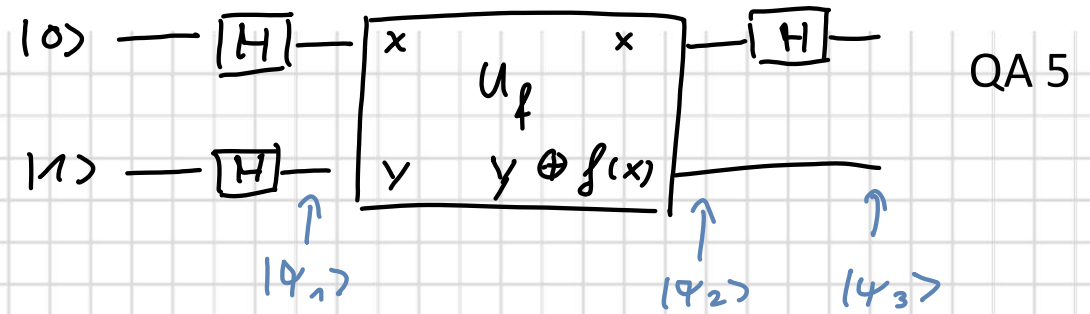 |0> H x x H
QA 5
U_f
|1> H y y ⊕ f(x)
|ψ₁> |ψ₂> |ψ₃>